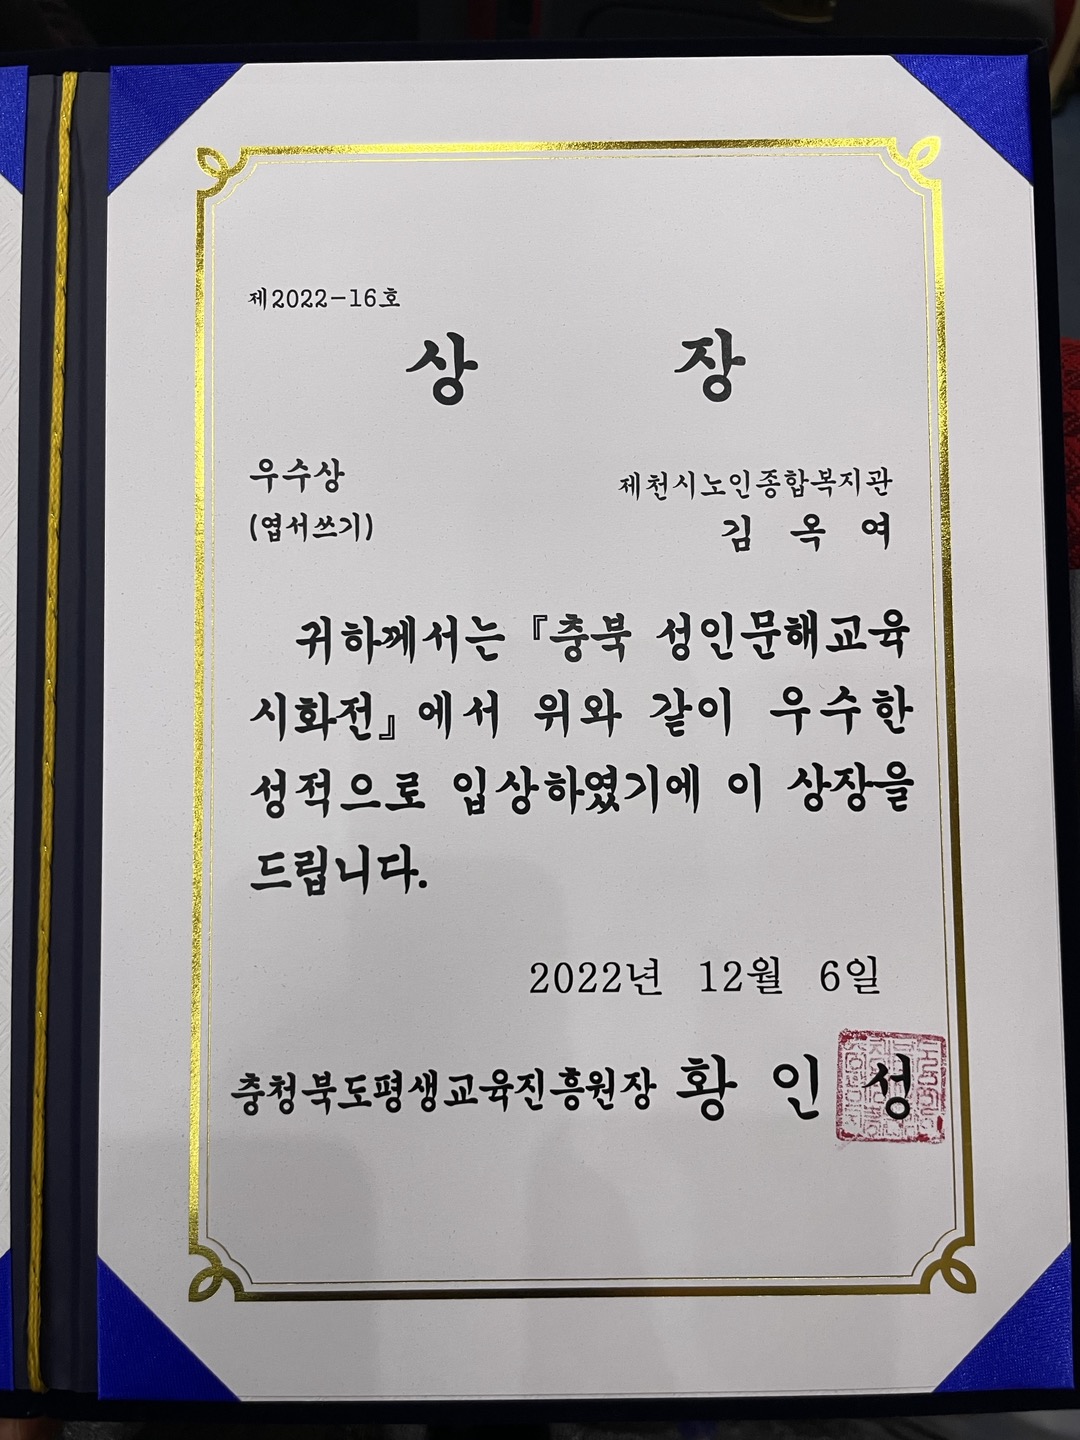 제2022-16호
상 장
우수상
제천시노인종합복지관
(엽서쓰기)
김 옥 여
귀하께서는 『충북 성인문해교육
시화전』에서 위와 같이 우수한
성적으로 입상하였기에 이 상장을
드립니다.
2022년 12월 6일
충청북도평생교육진흥원장 황 인 성